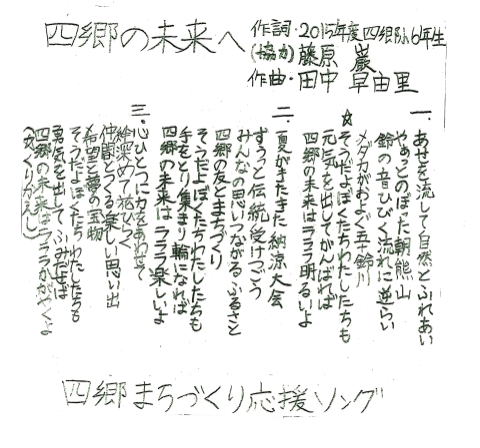 四郷の未来へ
作詞・2015年度四郷小6年生
(協力) 藤原 巌
作曲・田中 早由里
一、あせを流して自然とふれあい
やぁっとのぼった朝熊山
鈴の音ひびく流れに逆らい
メダカがおよぐ五十鈴川
☆そうだよぼくたちわたしたちも
元気を出してがんばれば
四郷の未来はラララ明るいよ
二、夏がきたきた納涼大会
ずぅっと伝統受けつごう
みんなの思いつながるふるさと
四郷の友とまちづくり
そうだよぼくたちわたしたちも
手をとり集まり輪になれば
四郷の未来はラララ楽しいよ
三、心ひとつに力をあわせて
絵深めて花ひらく
仲間とつくる楽しい思い出
希望と夢の宝物
そうだよぼくたちわたしたちも
勇気を出してふみだせば
四郷の未来はラララかがやくよ
(☆くりかえし)
四郷まちづくり応援ソング